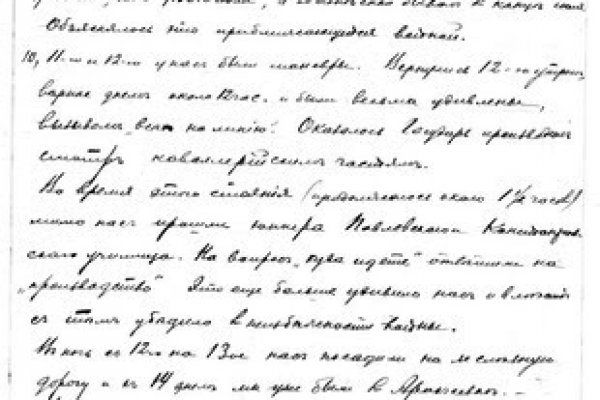 Объяснялось это приближающейся войной.
10, 11-го и 12-го у нас были маневры. Вернулись 12-го утром,
вернее днем около 12 час. и были весьма удивлены,
вызовом „всех на линию". Оказалось Государь производил
смотр кавалерийским частям.
Во время этого стояния (продолжалось около 1½ часов)
мимо нас прошли юнкера Павловского
ского училища. На вопрос „куда идете" ответили на
„производство" Это еще больше удивило нас и
с тем убедило в неизбежности войны.
В ночь с 12-го на 13-ое нас посадили на железную
дорогу и 14 днем мы уже были в